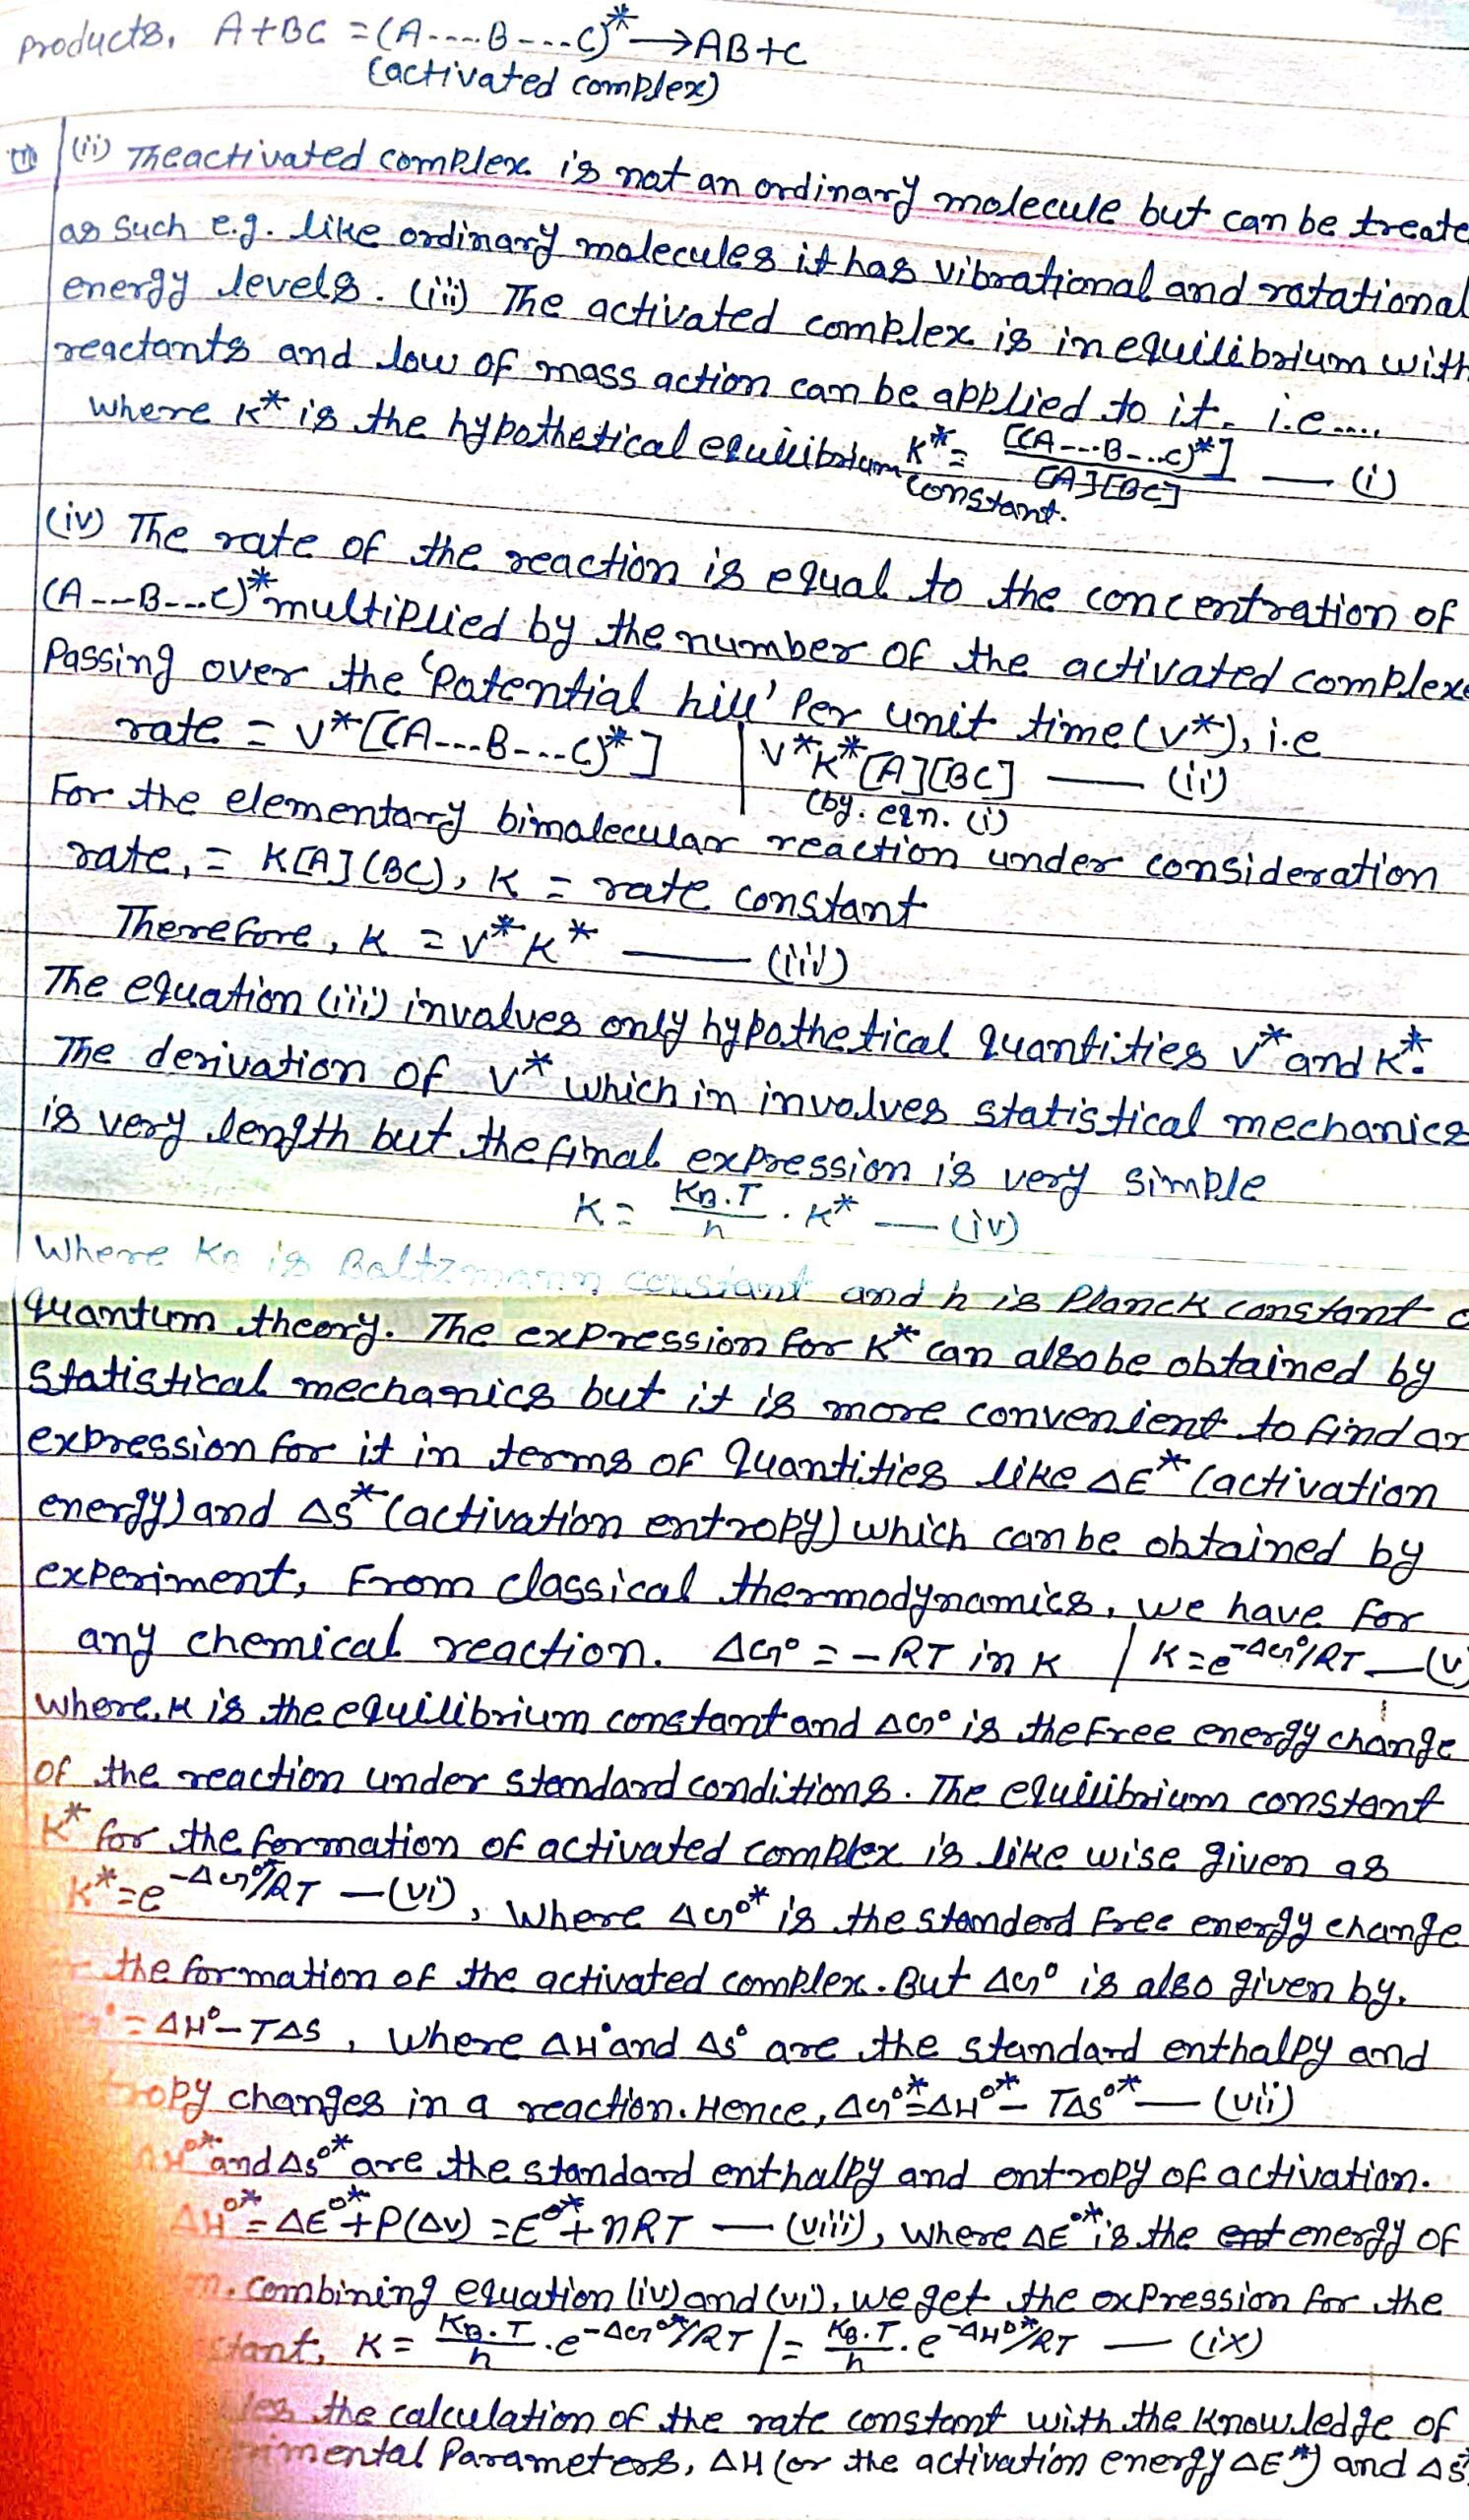 products, A+BC = (A----B----C)* → AB+C
(activated complex)
(ii) The activated complex is not an ordinary molecule but can be treate
as such e.g. like ordinary molecules it has vibrational and rotational
energy levels. (iii) The activated complex is in equilibrium with
reactants and low of mass action can be applied to it. i.e....
where K* is the hypothetical equilibrium constant. K* = [(A---B---C)*] / [A][BC] — (i)
(iv) The rate of the reaction is equal to the concentration of
(A---B---C)* multiplied by the number of the activated complexe
Passing over the 'Potential hill' Per unit time (v*), i.e
rate = v*[(A---B---C)*] | v*K*[A][BC] — (ii)
(by. eqn. (i)
For the elementary bimolecular reaction under consideration
rate, = K[A](BC), K = rate constant
Therefore, K = v* K* — (iii)
The equation (iii) involves only hypothetical quantities v* and K*.
The derivation of v* which in involves statistical mechanics
is very length but the final expression is very simple
K = KB.T / h . K* — (iv)
Where KB is Boltzmann constant and h is Planck constant o
quantum theory. The expression for K* can also be obtained by
statistical mechanics but it is more convenient to find an
expression for it in terms of quantities like ΔE* (activation
energy) and ΔS* (activation entropy) which can be obtained by
experiment, From classical thermodynamics, we have for
any chemical reaction. ΔG° = -RT in K | K = e^-ΔG°/RT — (v)
where, K is the equilibrium constant and ΔG° is the Free energy change
of the reaction under standard conditions. The equilibrium constant
K* for the formation of activated complex is like wise given as
K* = e^-ΔG°*/RT — (vi), Where ΔG°* is the standerd Free energy change
the formation of the activated complex. But ΔG° is also given by.
= ΔH° - TΔS, where ΔH° and ΔS° are the standard enthalpy and
ropy changes in a reaction. Hence, ΔG°* = ΔH°* - TΔS°* — (vii)
ΔH°* and ΔS°* are the standard enthalpy and entropy of activation.
ΔH°* = ΔE°* + P(Δv) = E°* + nRT — (viii), where ΔE°* is the energy of
n. combining equation (iv) and (vi), we get the expression for the
stant, K = KB.T / h . e^-ΔG°*/RT | = KB.T / h . e^-ΔH°*/RT — (ix)
les the calculation of the rate constant with the knowledge of
rimental Parameters, ΔH (or the activation energy ΔE*) and ΔS*